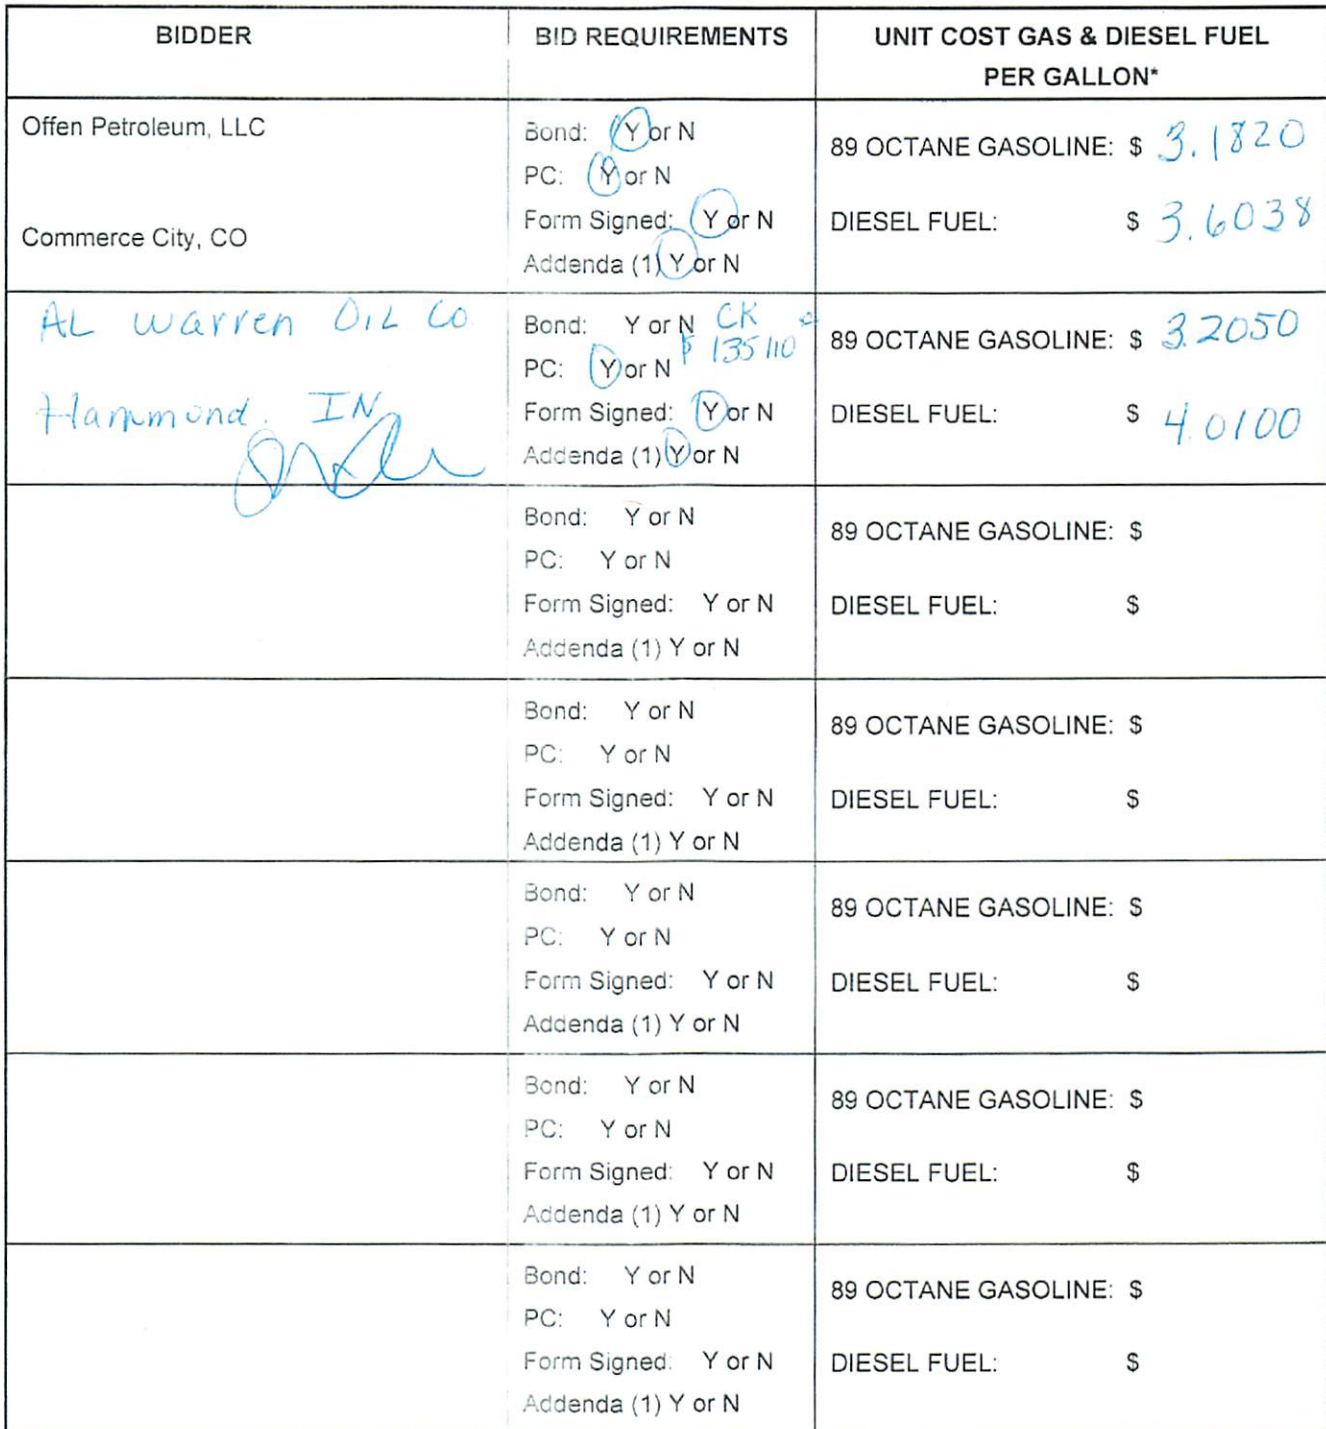 BIDDER
BID REQUIREMENTS
UNIT COST GAS & DIESEL FUEL
PER GALLON*
Offen Petroleum, LLC
Commerce City, CO
Bond: Y or N
PC: Y or N
Form Signed: Y or N
Addenda (1) Y or N
89 OCTANE GASOLINE: $ 3.1820
DIESEL FUEL: $ 3.6038
AL Warren OIL Co
Hammond, IN
Bond: Y or N CK
PC: Y or N $ 135110
Form Signed: Y or N
Addenda (1) Y or N
89 OCTANE GASOLINE: $ 3.2050
DIESEL FUEL: $ 4.0100
Bond: Y or N
PC: Y or N
Form Signed: Y or N
Addenda (1) Y or N
89 OCTANE GASOLINE: $
DIESEL FUEL: $
Bond: Y or N
PC: Y or N
Form Signed: Y or N
Addenda (1) Y or N
89 OCTANE GASOLINE: $
DIESEL FUEL: $
Bond: Y or N
PC: Y or N
Form Signed: Y or N
Addenda (1) Y or N
89 OCTANE GASOLINE: $
DIESEL FUEL: $
Bond: Y or N
PC: Y or N
Form Signed: Y or N
Addenda (1) Y or N
89 OCTANE GASOLINE: $
DIESEL FUEL: $
Bond: Y or N
PC: Y or N
Form Signed: Y or N
Addenda (1) Y or N
89 OCTANE GASOLINE: $
DIESEL FUEL: $